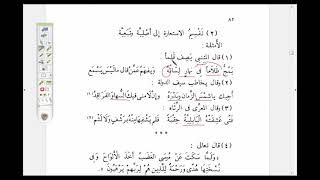 ٨٢
(٢) تَقْسِيمُ الاسْتعارة إلى أَصْلِيَّة وتَبَعِيَّة
الأمثلة :
(١) قال المتنبي يَصِف قَلَماً :
يَمُجُّ ظَلاَماً فى نَهارٍ لِسَانُهُ وَيَفْهَمُ عَمَّنْ قَالَ مَا لَيْسَ يَسْمَعُ
(٢) وقال يخاطب سيف الدولة :
أُحِبُّكَ يا شَمْسَ الزَّمانِ وبَدْرَهُ وإنْ لَامَنِى فِيكَ السُّهَا والفَرَاقِدُ
(٣) وقال المعرّى فى الرِّثَاء :
فَتًى عَشِقَتْهُ الْبَابِلِيَّةُ حِقْبَةً فَلَمْ يَشْفِهَا مِنْهُ بِرَشْفٍ وَلَا لَثْمِ
(٤) قال تعالى :
«وَلَمَّا سَكَتَ عَنْ مُوسَى الْغَضَبُ أَخَذَ الْأَلْوَاحَ وَفِى
نُسْخَتِهَا هُدًى وَرَحْمَةٌ لِلَّذِينَ هُمْ لِرَبِّهِمْ يَرْهَبُونَ»